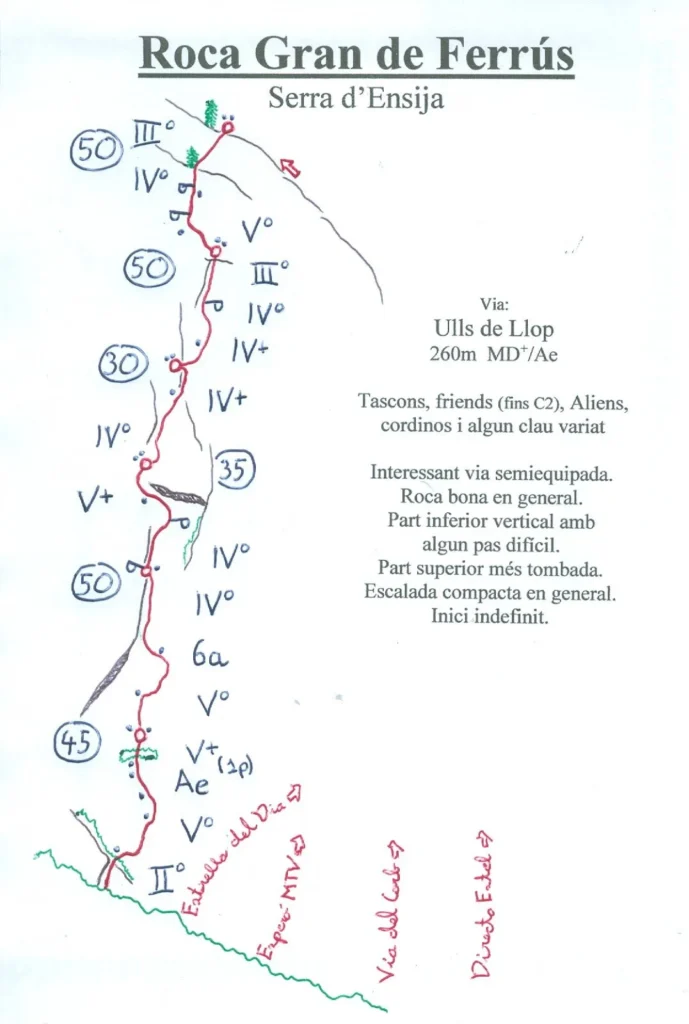 Roca Gran de Ferrús
Serra d'Ensija
III°
50
IV°
V°
50
III°
IV°
Via:
Ulls de Llop
260m MD+/Ae
IV+
30
IV+
Tascons, friends (fins C2), Aliens,
cordinos i algun clau variat
IV°
35
V+
Interessant via semiequipada.
Roca bona en general.
Part inferior vertical amb
algun pas difícil.
Part superior més tombada.
Escalada compacta en general.
Inici indefinit.
IV°
50
IV°
6a
V°
45
V+ (1p)
Ae
V°
II°
Estrella del Dia
Esperó MTV
Via del Corb
Directa Estel